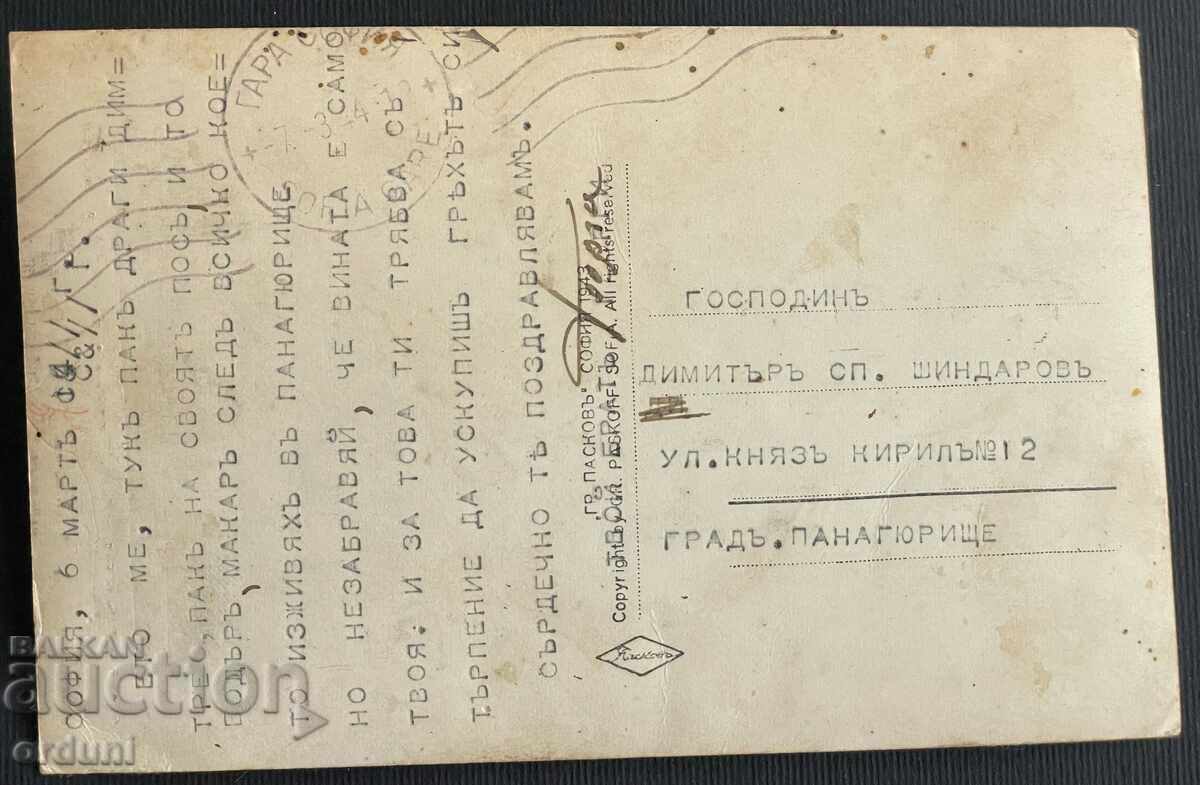 СОФИЯ, 6 МАРТЪ
ЕТО МЕ, ТУКЪ ПАКЪ ДРАГИ ДИМ=
ТРЕ, ПАКЪ НА СВОЯТЪ ПОСЪ, И ТО
ПОДЪРЪ, МАКАРЪ СЛЕДЪ ВСИЧКО КОЕ=
ТО ИЗЖИВЯХЪ ВЪ ПАНАГЮРИЩЕ.
НО НЕЗАБРАВЯЙ, ЧЕ ВИНАТА Е САМО
ТВОЯ: И ЗА ТОВА ТИ ТРЯБВА СЪ
ТЪРПЕНИЕ ДА УСКУПИШЪ ГРѢХЪТЪ СИ
СЪРДЕЧНО ТЬ ПОЗДРАВЛЯВАМЪ.
ТВОЙ БРАТЪ
ГАРА СОФИЯ
"ГР. ПАСКОВЪ" СОФИЯ 1943
Copyright by GR. PASKOFF - SOFIA. All rights reserved
Пасковъ
ГОСПОДИНЪ
ДИМИТЪРЪ СП. ШИНДАРОВЪ
УЛ. КНЯЗЪ КИРИЛЪ №12
ГРАДЪ. ПАНАГЮРИЩЕ
БАЛКАН
auction
orduni